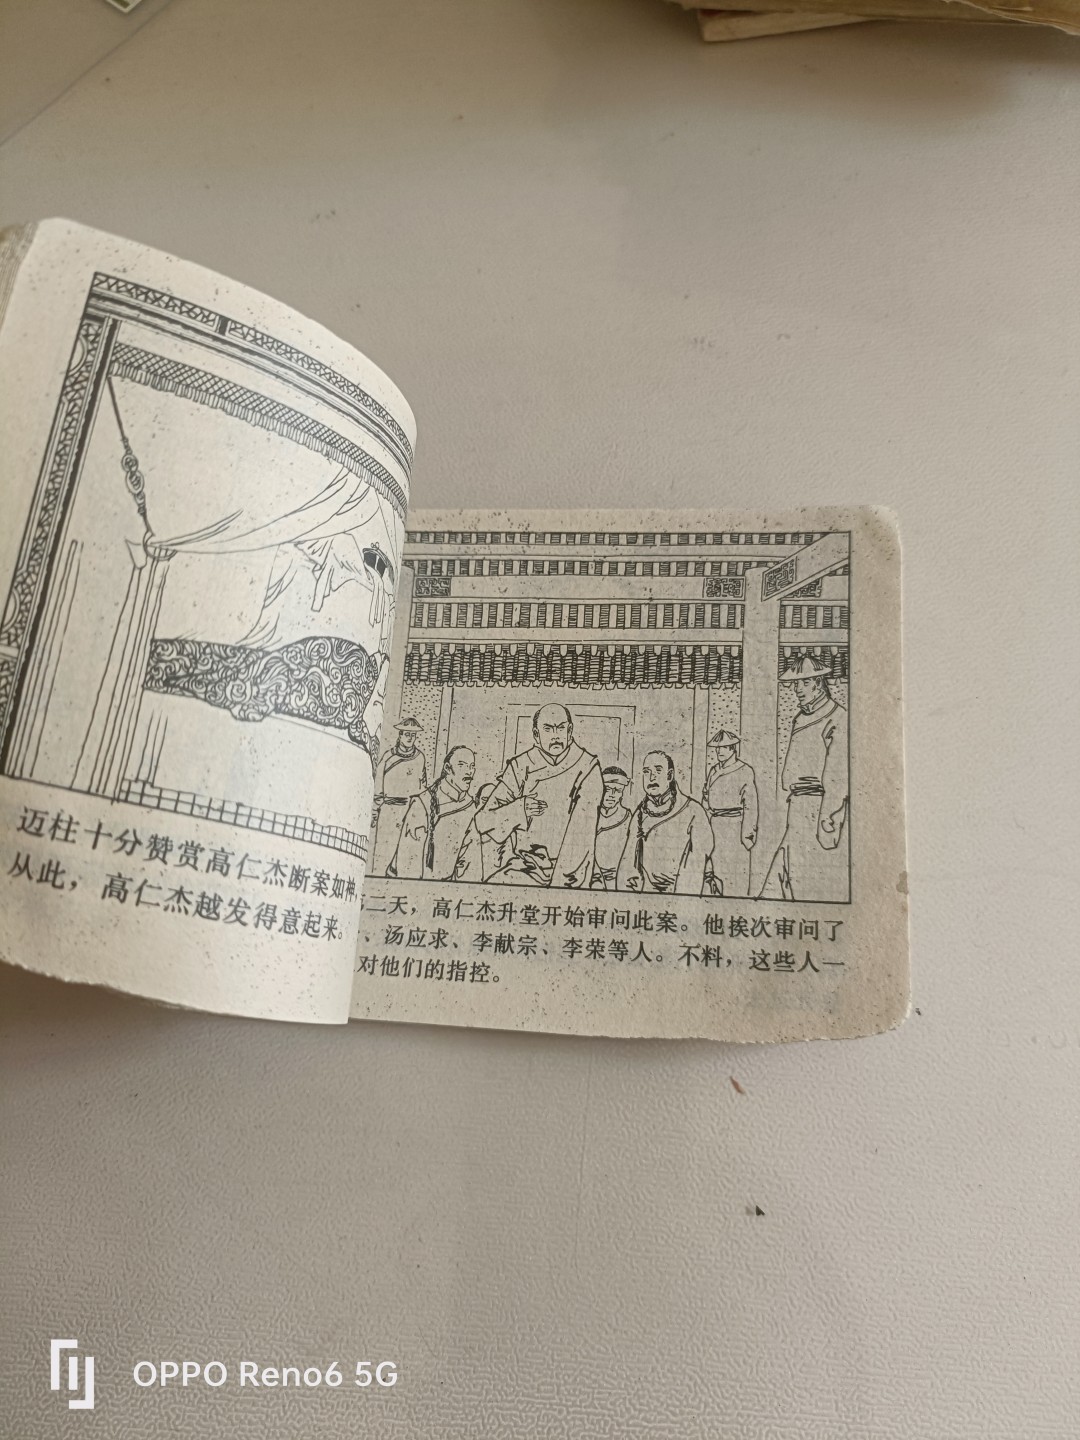 迈柱十分赞赏高仁杰断案如神,
从此，高仁杰越发得意起来。
二天，高仁杰升堂开始审问此案。他挨次审问了
、汤应求、李献宗、李荣等人。不料，这些人一
对他们的指控。
OPPO Reno6 5G